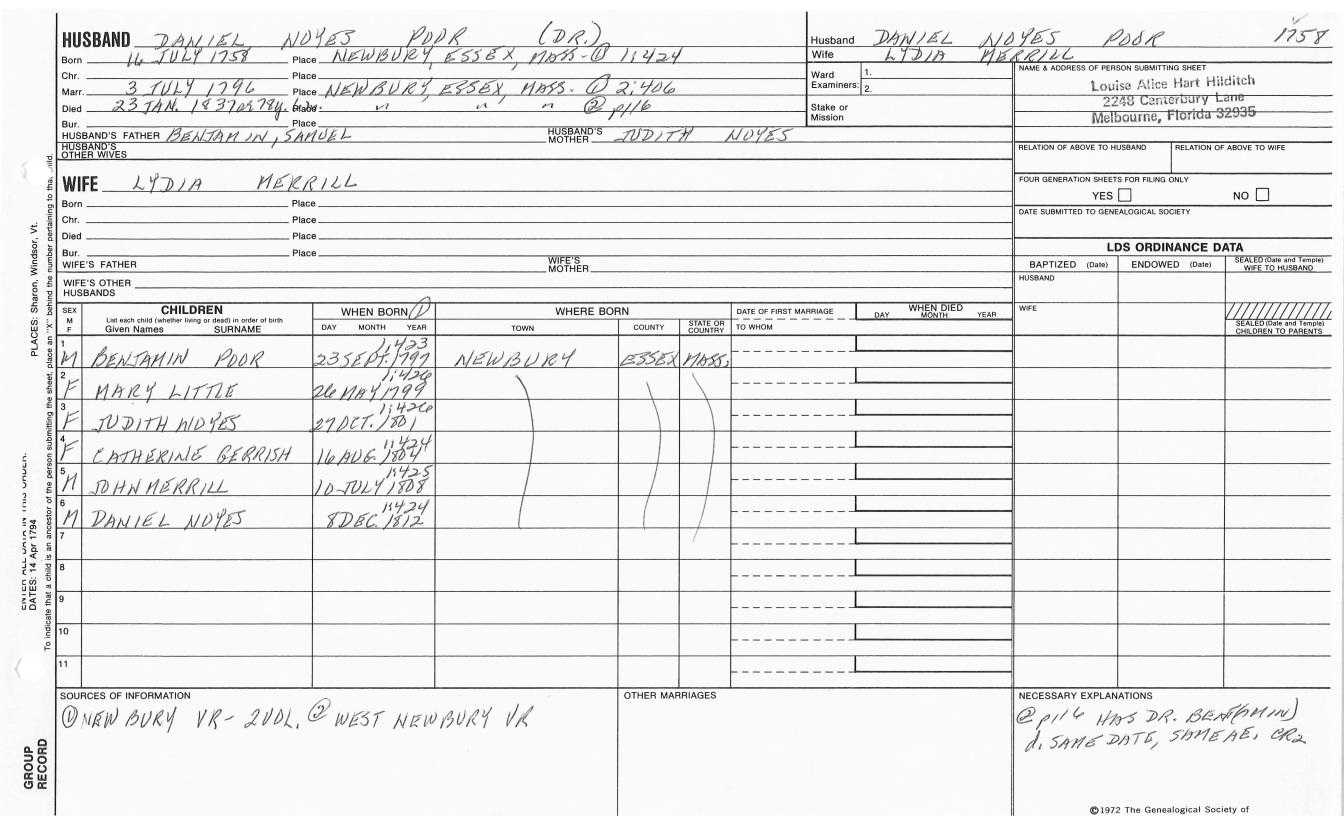 HUSBAND DANIEL NOYES POOR (DR.)
Born 16 JULY 1758 Place NEWBURY, ESSEX, MASS. ① 1:424
Chr. Place
Marr. 3 JULY 1796 Place NEWBURY, ESSEX, MASS. ① 2:406
Died 23 JAN. 1837 ae 78y. Place " " " ② p116
Bur.
HUSBAND'S FATHER BENJAMIN, SAMUEL HUSBAND'S MOTHER JUDITH NOYES
HUSBAND'S OTHER WIVES
Husband DANIEL NOYES POOR 1758
Wife LYDIA MERRILL
Ward Examiners: 1.
2.
Stake or Mission
NAME & ADDRESS OF PERSON SUBMITTING SHEET
Louise Alice Hart Hilditch
2248 Canterbury Lane
Melbourne, Florida 32935
RELATION OF ABOVE TO HUSBAND RELATION OF ABOVE TO WIFE
FOUR GENERATION SHEETS FOR FILING ONLY
YES NO
DATE SUBMITTED TO GENEALOGICAL SOCIETY
WIFE LYDIA MERRILL
Born Place
Chr. Place
Died Place
Bur. Place
WIFE'S FATHER WIFE'S MOTHER
WIFE'S OTHER HUSBANDS
LDS ORDINANCE DATA
BAPTIZED (Date) ENDOWED (Date) SEALED (Date and Temple) WIFE TO HUSBAND
HUSBAND
WIFE
SEALED (Date and Temple) CHILDREN TO PARENTS
SEX M F
CHILDREN
List each child (whether living or dead) in order of birth
Given Names SURNAME
WHEN BORN ①
DAY MONTH YEAR
WHERE BORN
TOWN COUNTY STATE OR COUNTRY
DATE OF FIRST MARRIAGE
TO WHOM
WHEN DIED
DAY MONTH YEAR
1 M BENJAMIN POOR 1:423 23 SEPT. 1797 NEWBURY ESSEX MASS.
2 F MARY LITTLE 1:426 26 MAY 1799
3 F JUDITH NOYES 1:426 27 OCT. 1801
4 F CATHERINE GERRISH 1:424 16 AUG. 1804
5 M JOHN MERRILL 1:425 10 JULY 1808
6 M DANIEL NOYES 1:424 8 DEC. 1812
7
8
9
10
11
SOURCES OF INFORMATION
① NEWBURY VR- 2VOL. ② WEST NEWBURY VR
OTHER MARRIAGES
NECESSARY EXPLANATIONS
② p116 HAS DR. BENJ(AMIN)
d. SAME DATE, SAME AE. CR2
©1972 The Genealogical Society of
PLACES: Sharon, Windsor, Vt.
ENTER ALL DATA IN THIS ORDER:
DATES: 14 Apr 1794
To indicate that a child is an ancestor of the person submitting the sheet, place an "X" behind the number pertaining to that child.
GROUP RECORD